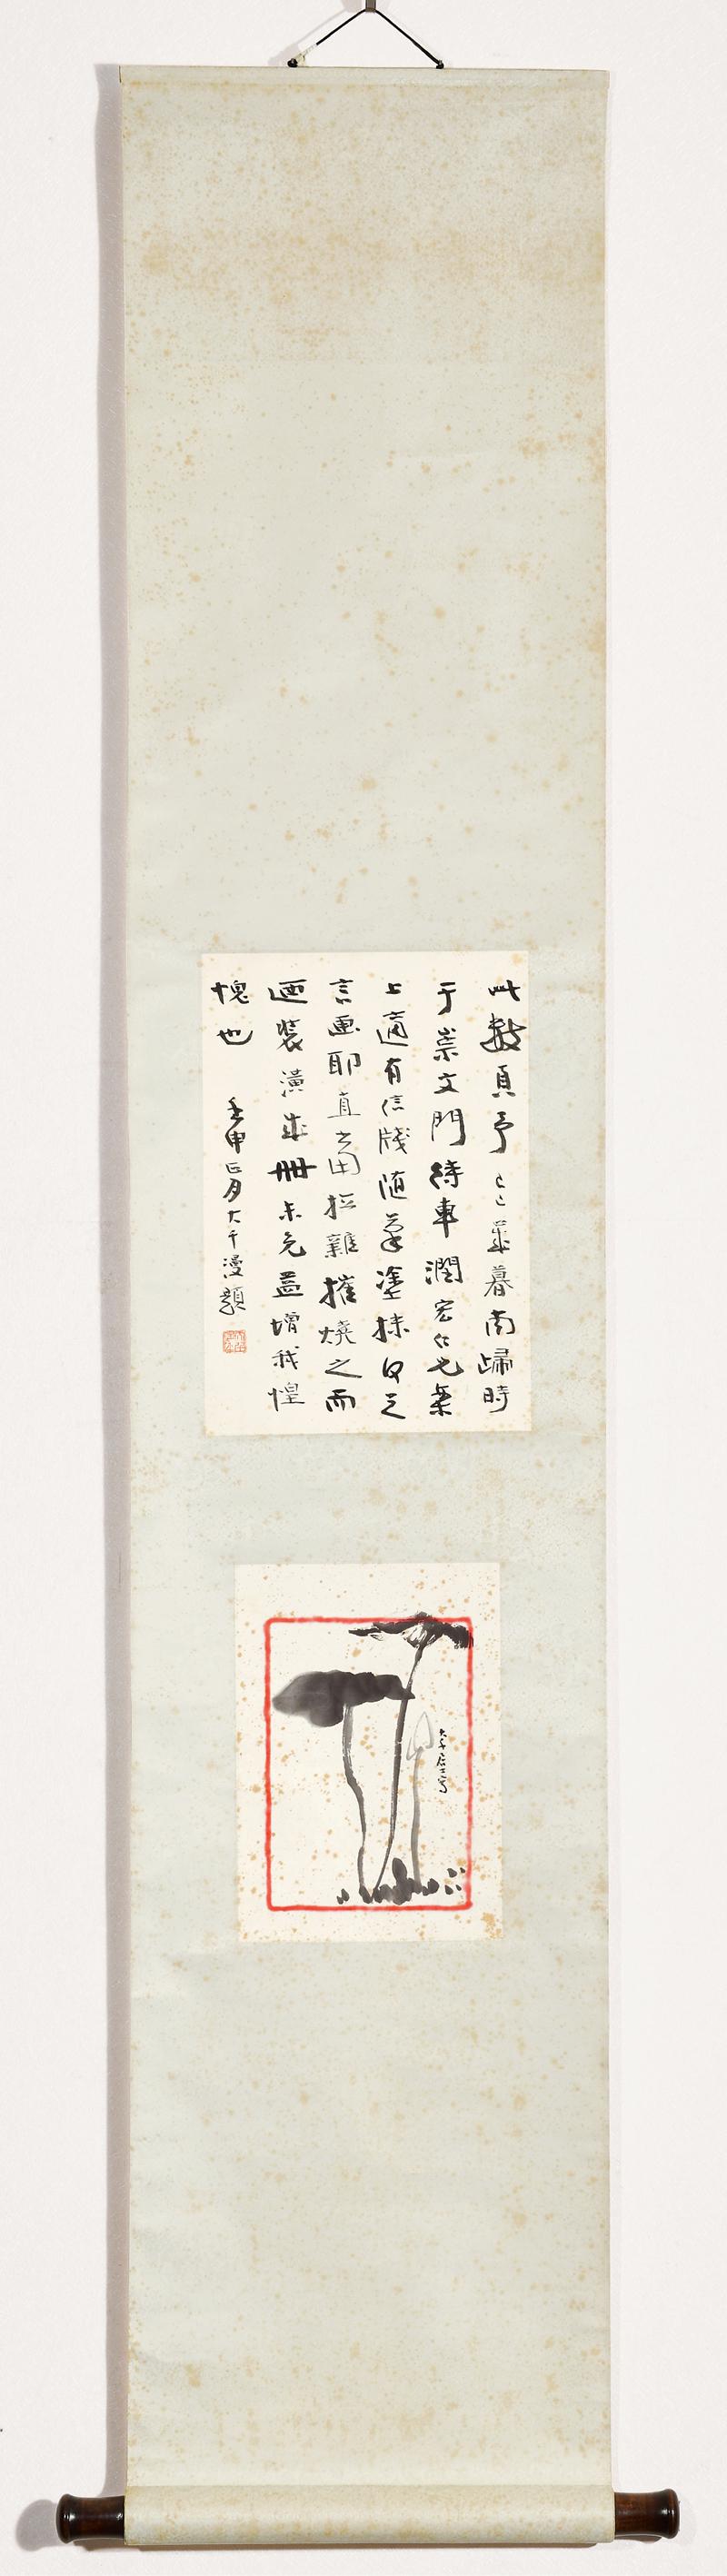 此數頁予己巳歲暮南歸時
于崇文門待車潤宏仁也案
上適有信牋隨筆塗抹何足
言畫耶直當拉雜摧燒之而
迺裝潢成冊未免益增我惶
愧也
壬申正月大千漫題
大千居士寫